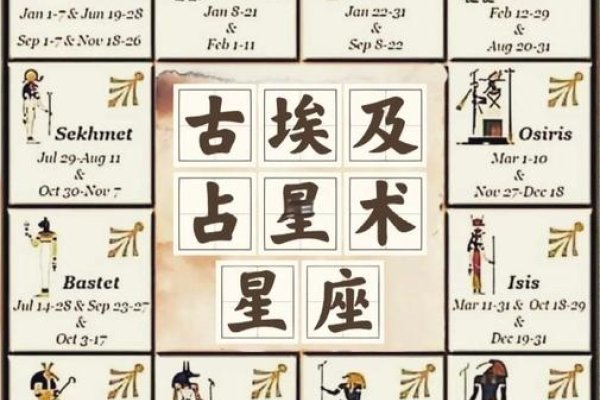 Jan 1-7 & Jun 19-28
Sep 1-7 & Nov 18-26
Jan 8-21
&
Feb 1-11
Jan 22-31
&
Sep 8-22
Feb 12-29
&
Aug 20-31
Sekhmet
Jul 29-Aug 11
&
Oct 30-Nov 7
古埃及
占星术
星座
Osiris
Mar 1-10
&
Nov 27-Dec 18
Bastet
Jul 14-28 & Sep 23-27
&
Oct 3-17
Isis
Mar 11-31 & Oct 18-29
&
Dec 19-31